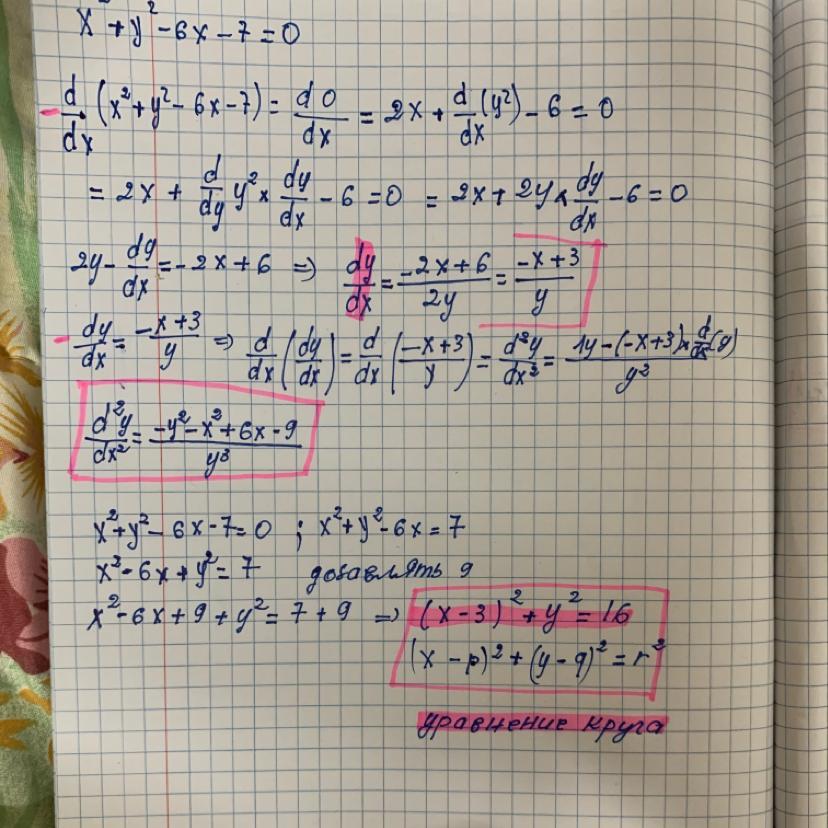 x² + y² - 6x - 7 = 0
- d/dx (x² + y² - 6x - 7) = d0/dx = 2x + d/dx (y²) - 6 = 0
= 2x + d/dy y² × dy/dx - 6 = 0 = 2x + 2y × dy/dx - 6 = 0
2y - dy/dx = -2x + 6 ⇒ dy/dx = (-2x + 6)/2y = (-x + 3)/y
- dy/dx = (-x + 3)/y ⇒ d/dx (dy/dx) = d/dx ((-x + 3)/y) = d²y/dx² = (-1y - (-x + 3) × d/dx (y))/y²
d²y/dx² = (-y² - x² + 6x - 9)/y³
x² + y² - 6x - 7 = 0 ; x² + y² - 6x = 7
x² - 6x + y² = 7 добавлять 9
x² - 6x + 9 + y² = 7 + 9 ⇒ (x - 3)² + y² = 16
(x - p)² + (y - q)² = r²
уравнение круга